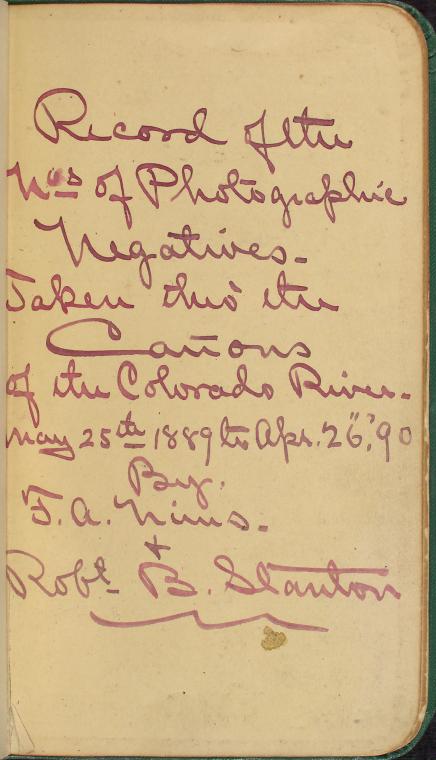 Record of the
Nos of Photographic
Negatives-
Taken thro' the
Cañons
of the Colorado River-
May 25th 1889 to Apr. 26", 90
By.
F. A. Nims.
+
Robt. B. Stanton